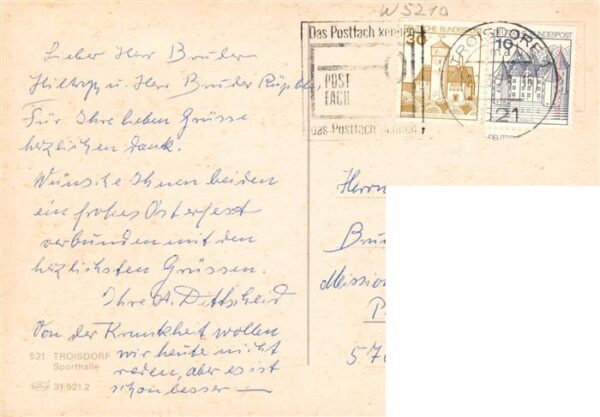 W 5210
Das Postfach
POST
FACH
Das Postfach
30
DEUTSCHE BUNDESPOST
TROISDORF
21
BUNDESPOST
Lieber Herr Bruder
u. Herr Bruder
Für Ihre lieben Grüsse
herzlichen Dank.
Wünsche Ihnen beiden
ein frohes Osterfest
verbunden mit den
herzlichsten Grüssen.
Ihre A. Dittscheid
Von der Krankheit wollen
wir heute nicht
reden, aber es ist
schon besser —
Herrn
Bru
Mission
P
570
521 TROISDORF
Sporthalle
31.521.2